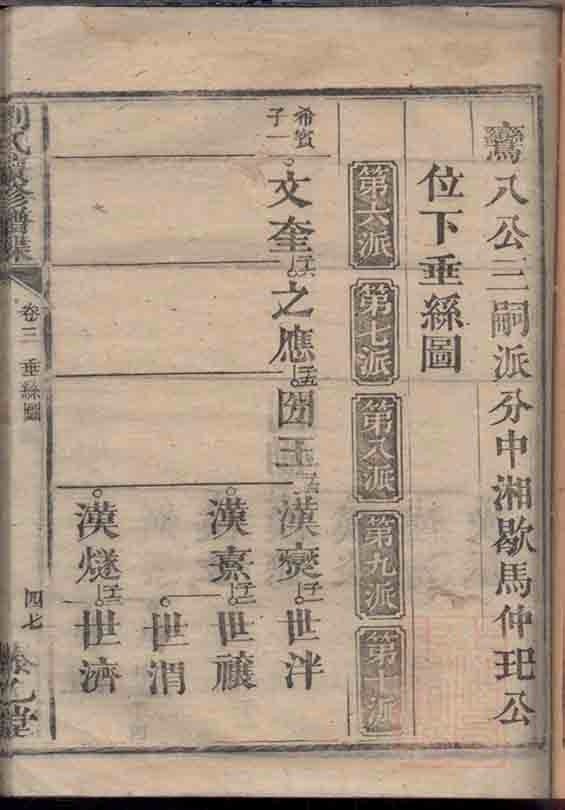 鸞八公三嗣派分中湘歇馬仲玘公
位下垂絲圖
第六派
第七派
第八派
第九派
第十派
希賓子一
文奎
之應
國玉
漢燮
世泮
漢熹
世禳
世渭
漢燧
世濟
劉氏續修譜牒
卷三 垂絲圖
四七